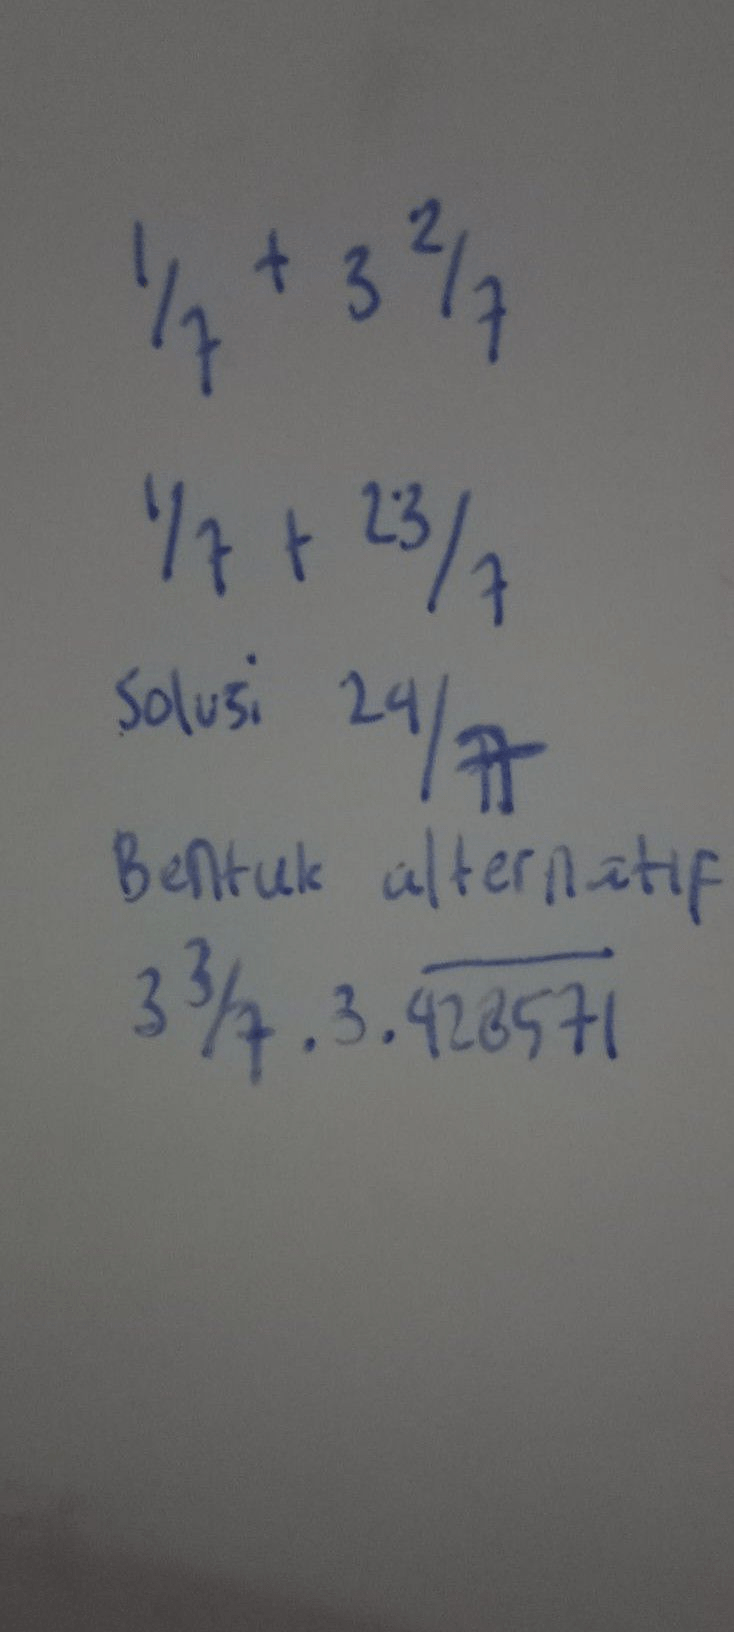 1/7 + 3 2/7
1/7 + 23/7
Solusi 24/7
Bentuk alternatif
3 3/7 . 3.428571